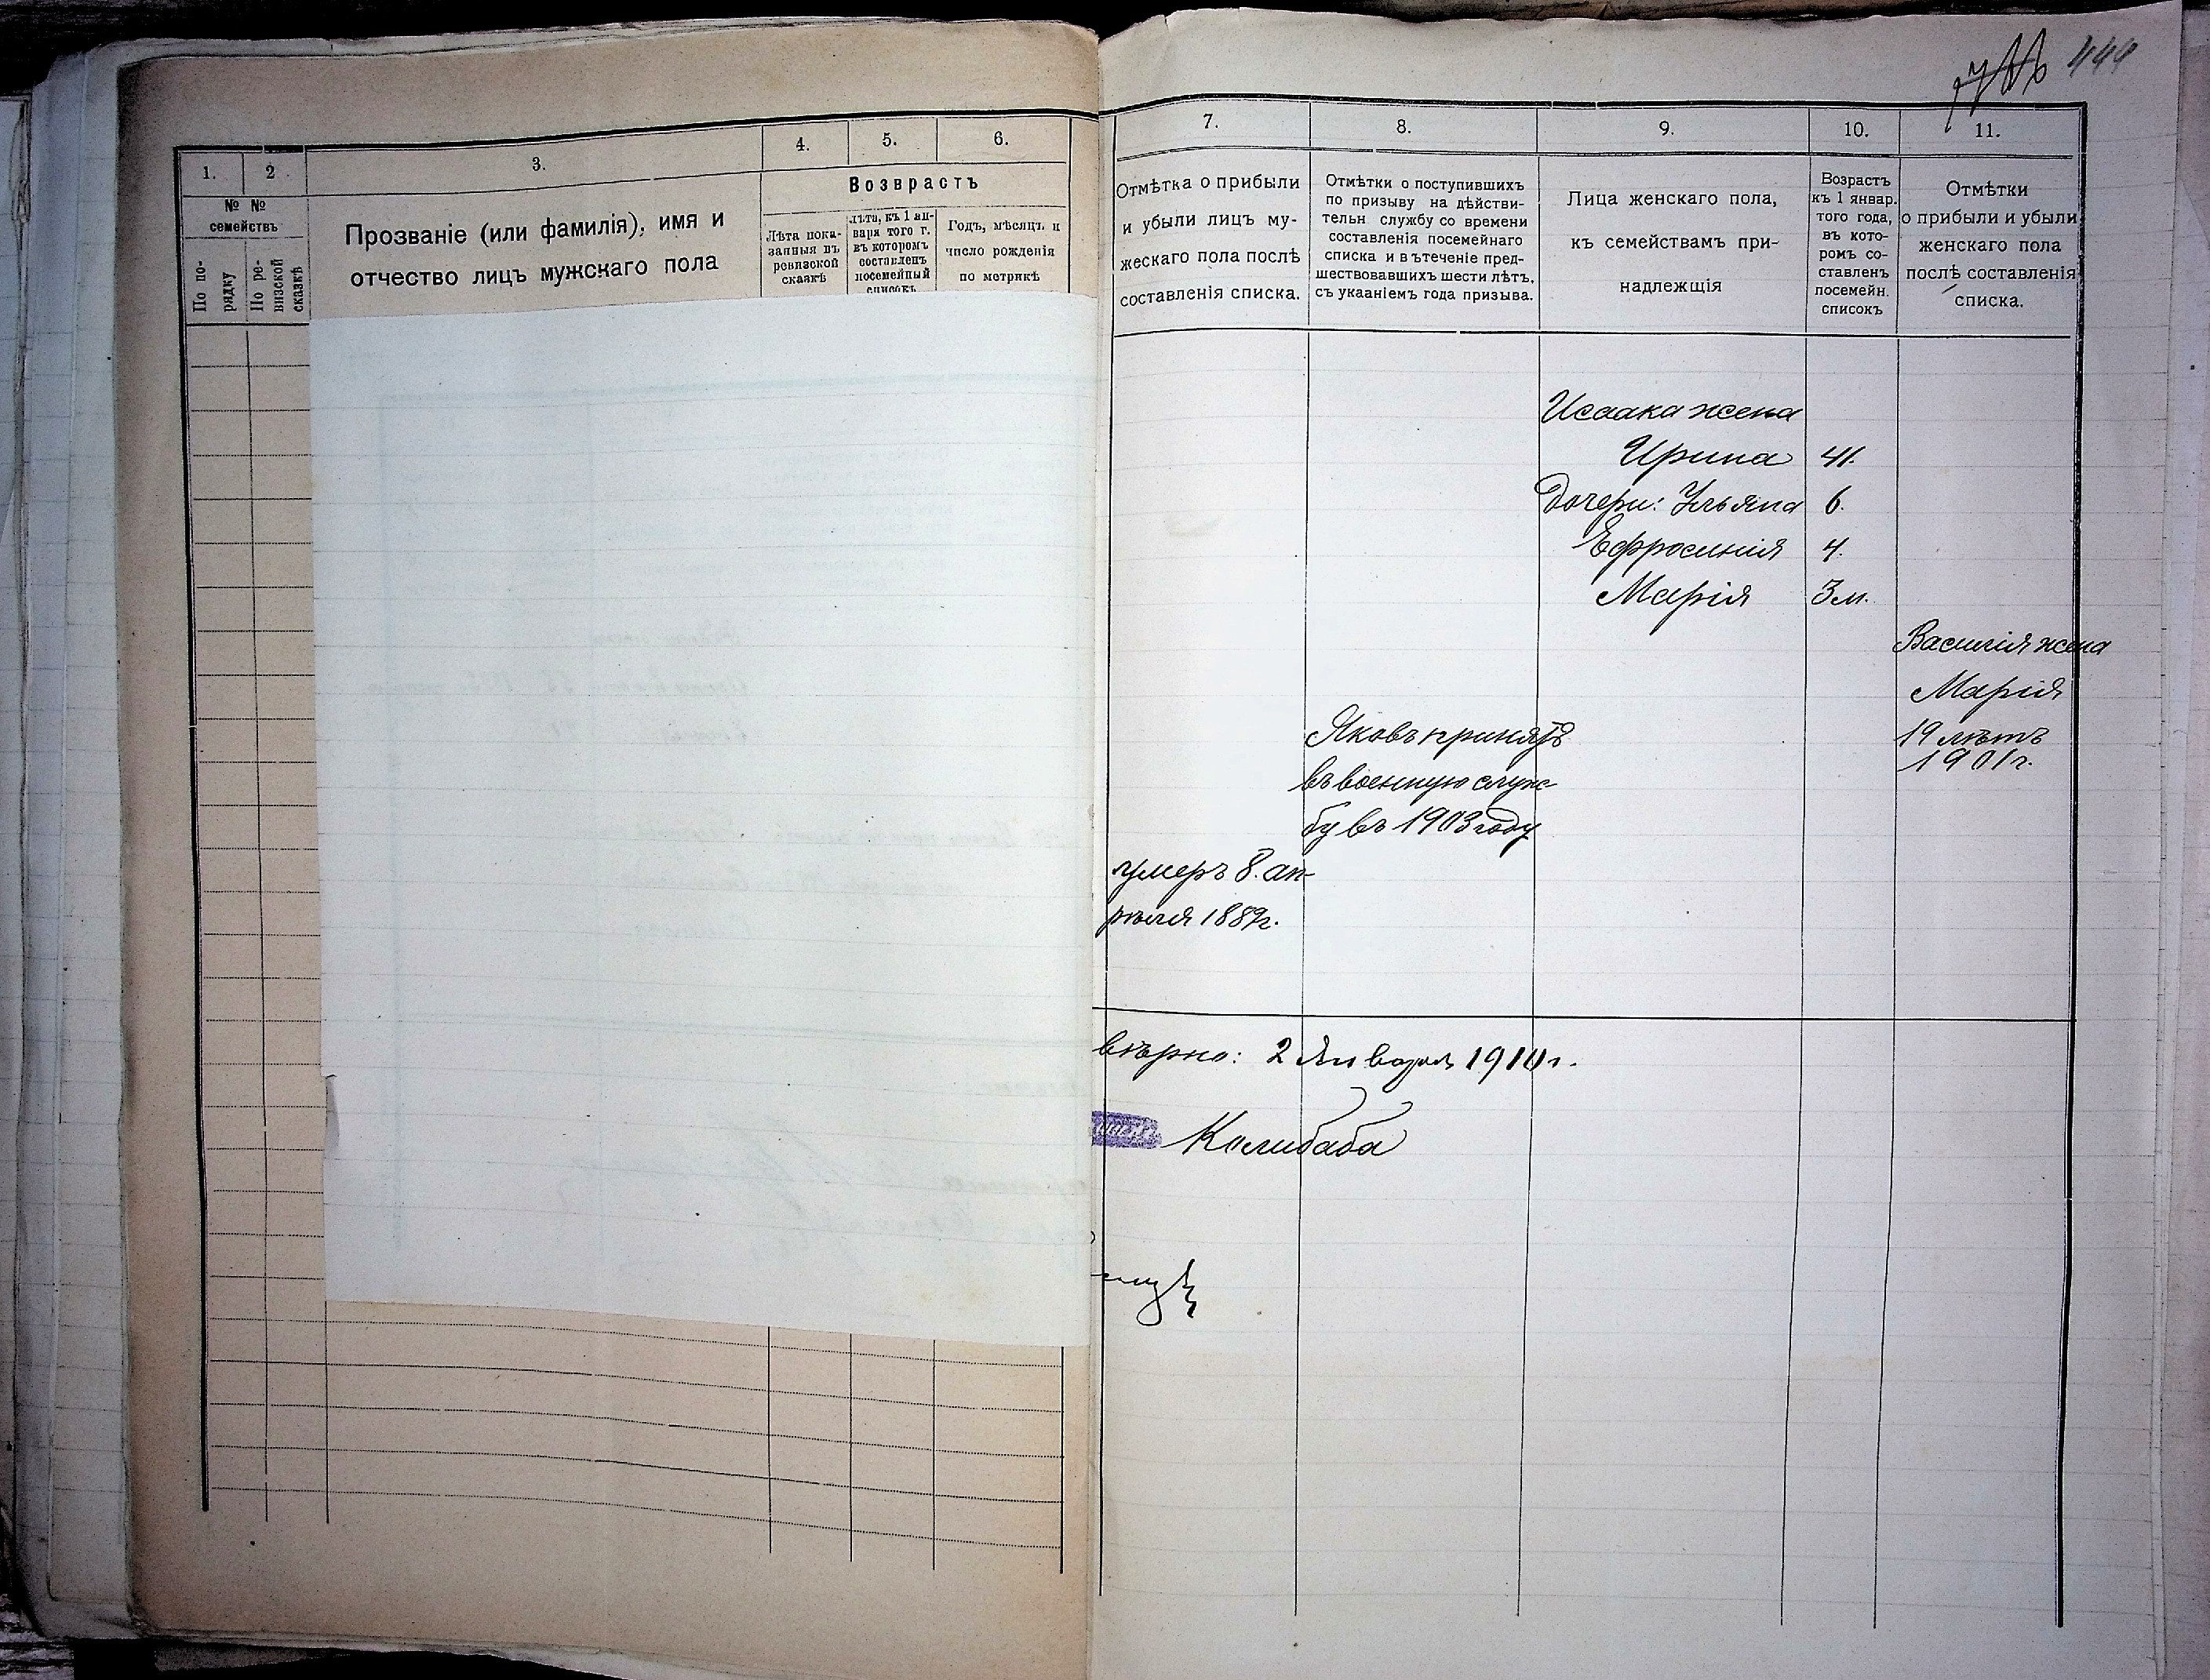 444
1.
2
3.
4.
5.
6.
№ №
семействъ
По по-
рядку
По ре-
визской
сказкѣ
Прозваніе (или фамилія), имя и
отчество лицъ мужскаго пола
Возврастъ
Лѣта пока-
занныя въ
ревизской
сказкѣ
лѣта, къ 1 ян-
варя того г.
въ которомъ
составленъ
посемейный
списокъ
Годъ, мѣсяцъ и
число рожденія
по метрикѣ
7.
8.
9.
10.
11.
Отмѣтка о прибыли
и убыли лицъ му-
жескаго пола послѣ
составленія списка.
Отмѣтки о поступившихъ
по призыву на дѣйстви-
тельн службу со времени
составленія посемейнаго
списка и въ теченіе пред-
шествовавшихъ шести лѣтъ,
съ укааніемъ года призыва.
Лица женскаго пола,
къ семействамъ при-
надлежщія
Возрастъ
къ 1 январ.
того года,
въ кото-
ромъ со-
ставленъ
посемейн.
списокъ
Отмѣтки
о прибыли и убыли
женскаго пола
послѣ составленія
списка.
Исаака жена
Ирина 41.
дочери: Ульяна 6.
Ефросинія 4.
Марія 3 м.
Василія жена
Марія
19 лѣтъ
1901 г.
Яковъ принятъ
въ военную служ-
бу въ 1903 году
умеръ 8. ап-
рѣля 1889 г.
вѣрно: 2 Января 1910 г.
Колибаба